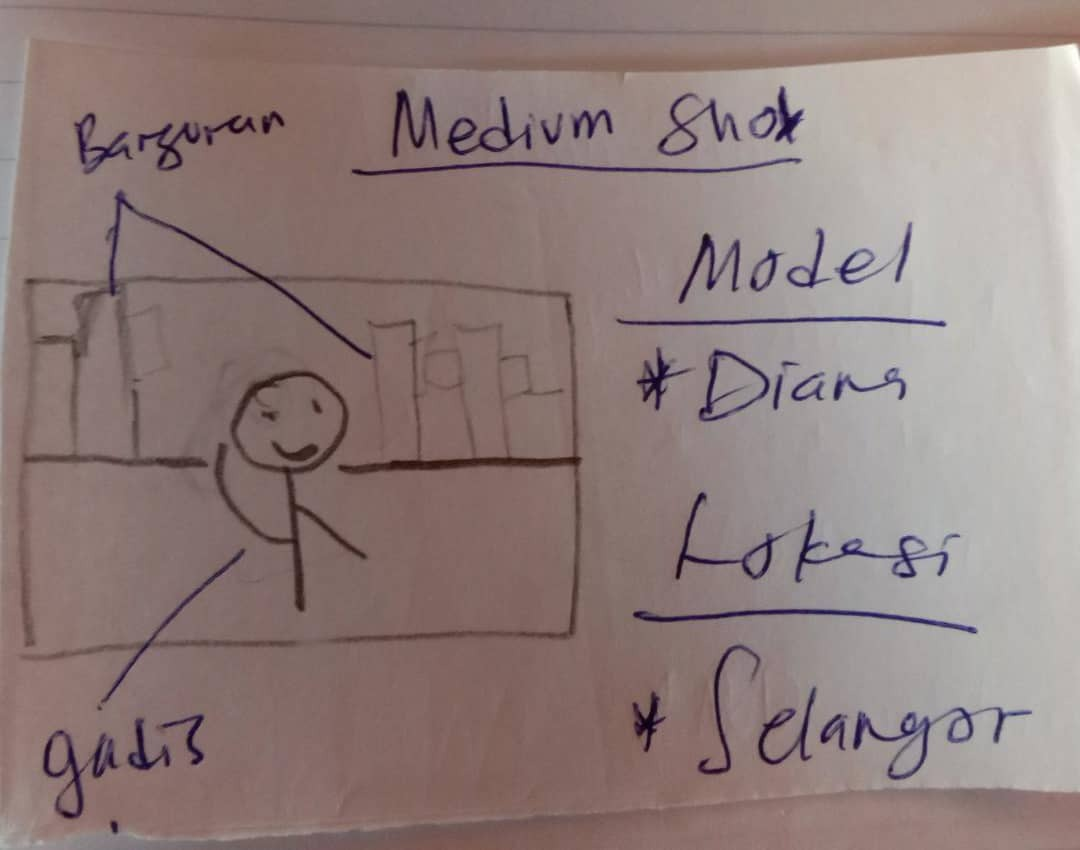 Medium Shot
Bangunan
Model
* Diana
Lokasi
* Selangor
gadis